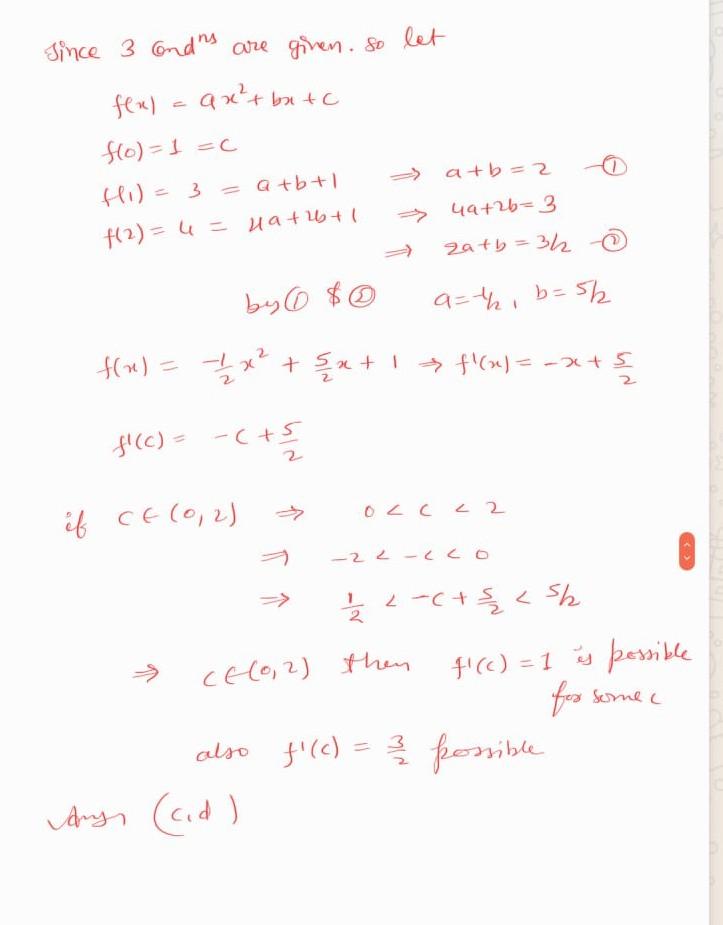 Since 3 Condns are given. so let
f(x) = ax² + bx + c
f(0) = 1 = c
f(1) = 3 = a+b+1 ⇒ a+b = 2 —①
f(2) = 4 = 4a+2b+1 ⇒ 4a+2b = 3
⇒ 2a+b = 3/2 —②
by ① $ ② a = -1/2, b = 5/2
f(x) = -1/2 x² + 5/2 x + 1 ⇒ f'(x) = -x + 5/2
f'(c) = -c + 5/2
if c ∈ (0,2) ⇒ 0 < c < 2
⇒ -2 < -c < 0
⇒ 1/2 < -c + 5/2 < 5/2
⇒ c ∈ (0,2) then f'(c) = 1 is possible
for some c
also f'(c) = 3/2 possible
Ans (c,d)